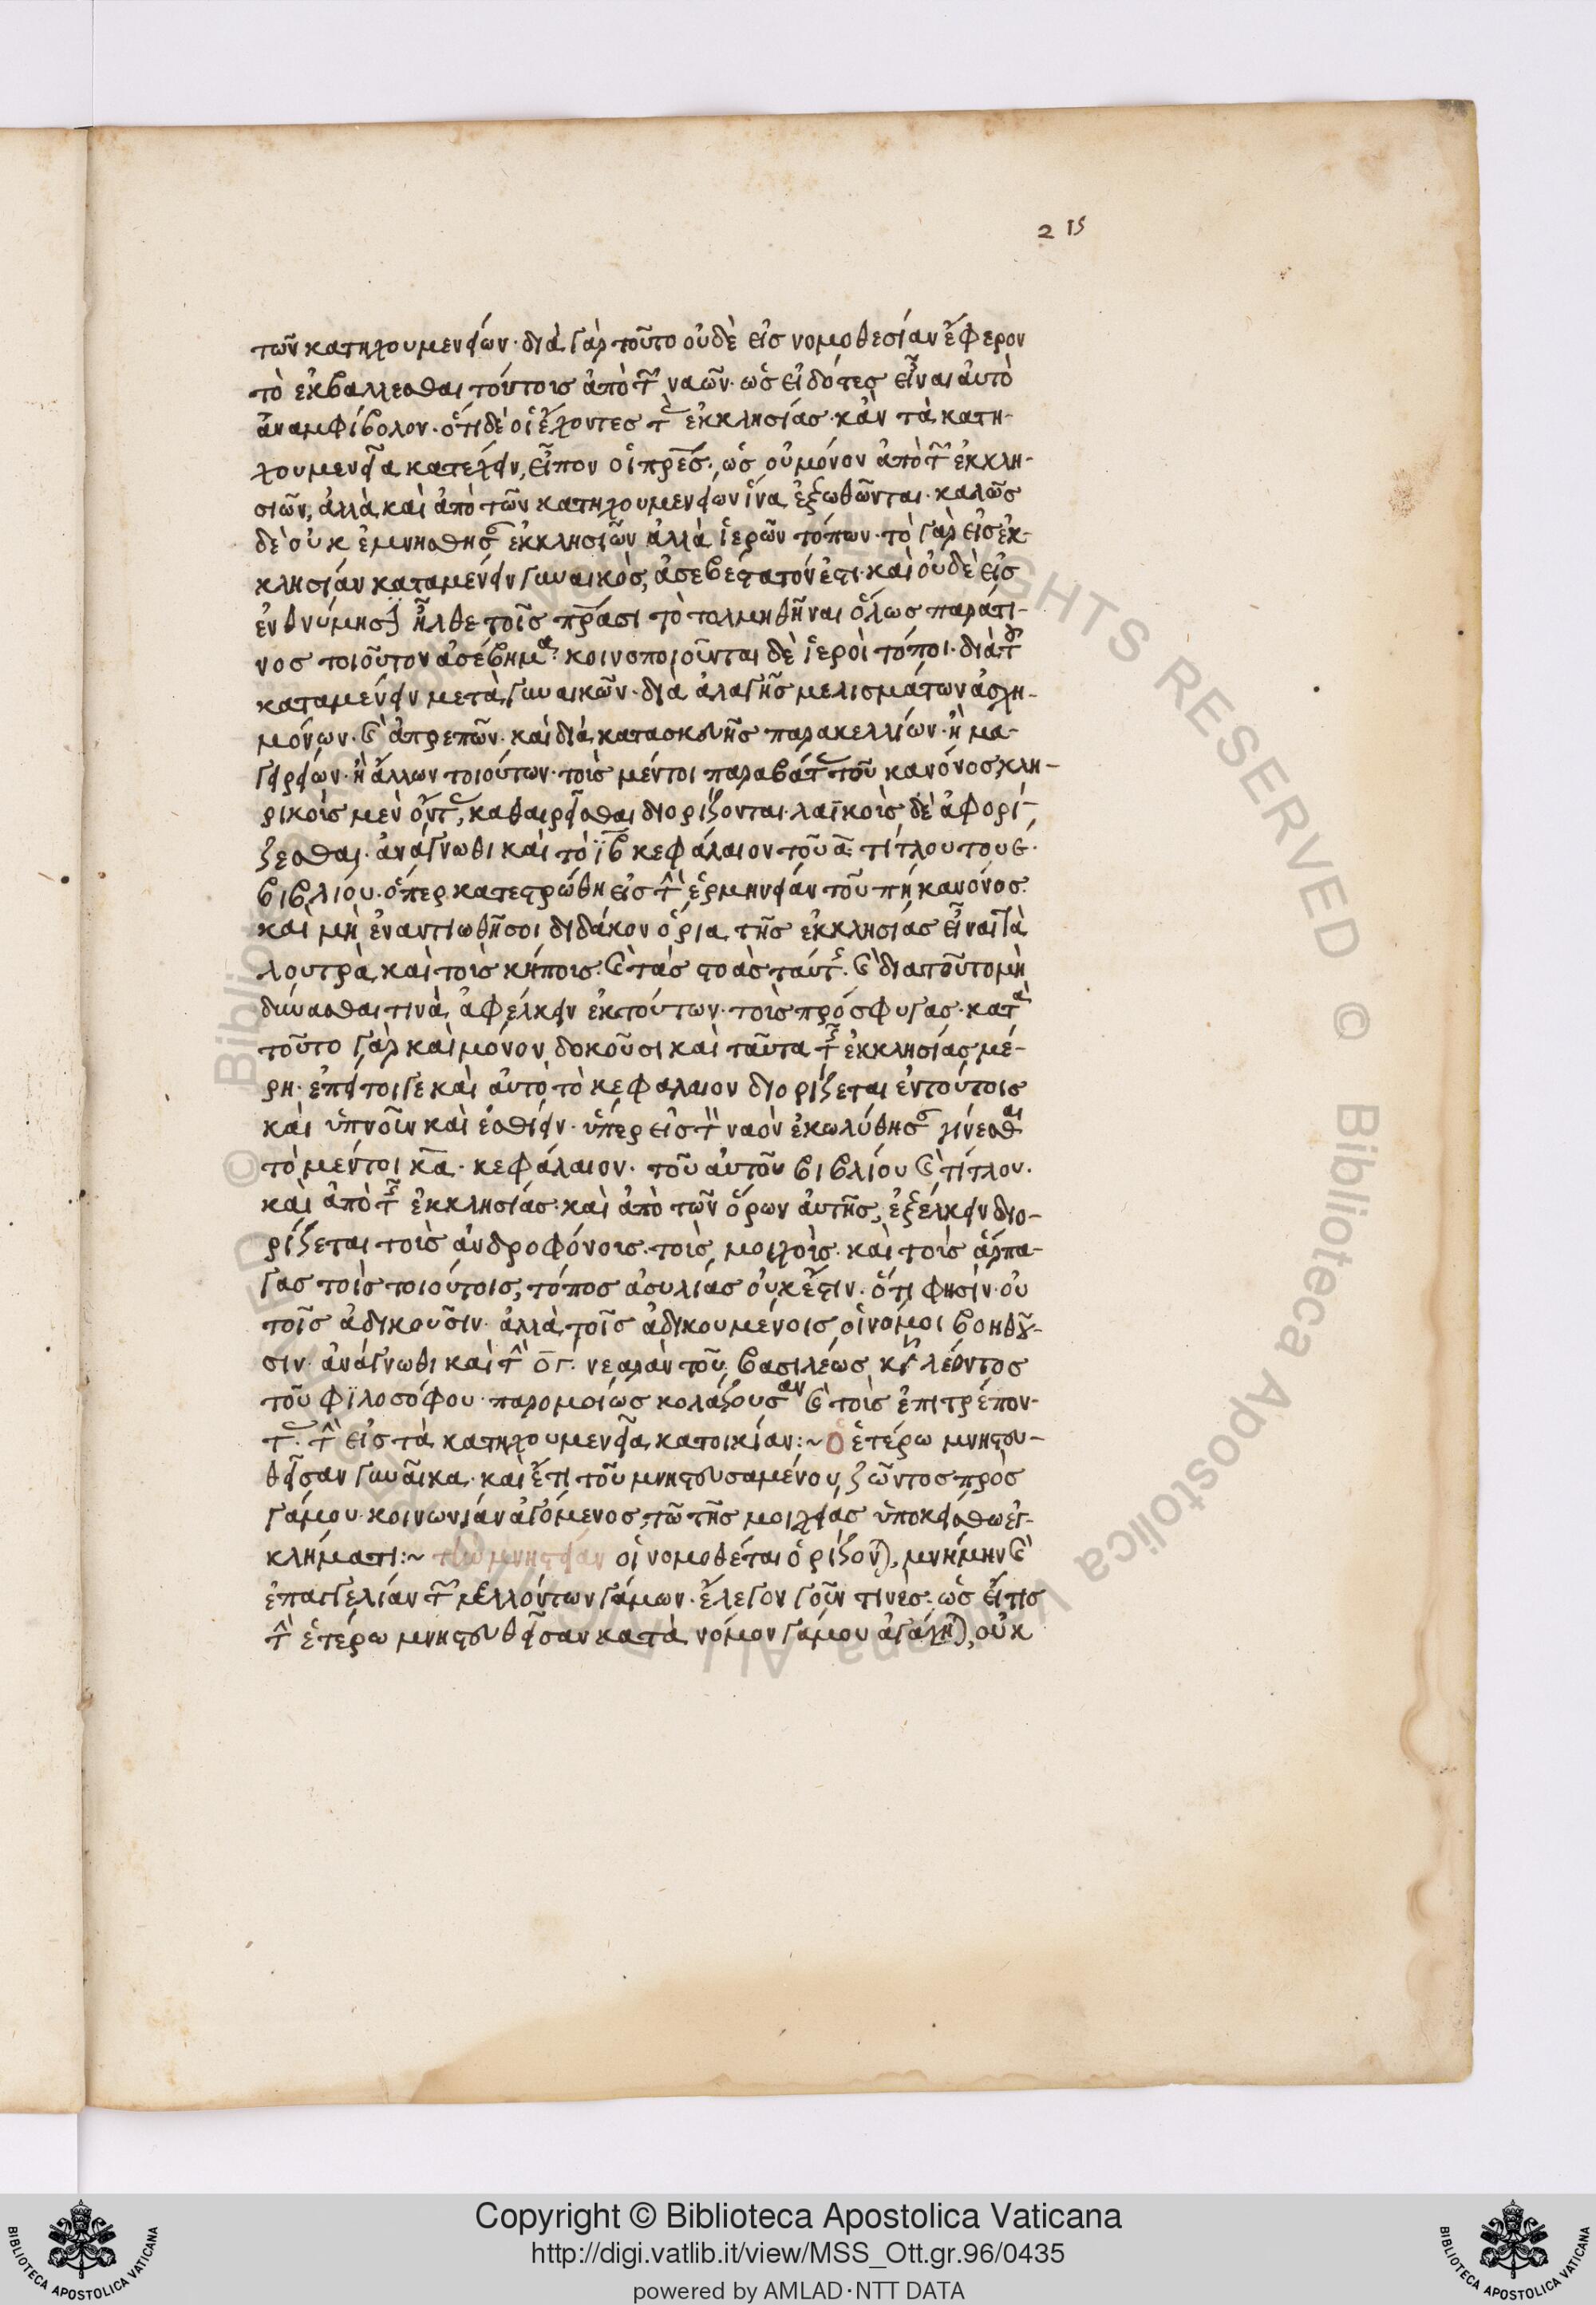 215
τῶν κατηχουμενείων· διὰ γὰρ τοῦτο οὐδὲ εἰσ νομοθεσίαν ἔφερον
τὸ ἐκβαλλεσθαι τούτοισ ἀπὸ τῶν ναῶν· ὡς εἰδότεσ εἶναι ἀυτὸ
ἀναμφίβολον· ὅτι δὲ οἱ ἔχοντεσ τὰς ἐκκλησίασ· κἂν τὰ κατη-
χουμενεῖα κατεῖχον, εἶπον οἱ πρ̅ε̅σ, ὡς οὐ μόνον ἀπὸ τῶν ἐκκλη-
σιῶν, ἀλλὰ καὶ ἀπὸ τῶν κατηχουμενείων ἵνα ἐξωθῶνται· καλῶσ
δὲ οὐκ ἐμνήσθησαν ἐκκλησιῶν ἀλλὰ ἱερῶν τόπων· τὸ γὰρ εἰσ ἐκ-
κλησίαν καταμένειν γυναικὸσ, ἀσεβέστατόν ἐστι· καὶ οὐδὲ εἰσ
ἐνθύμησιν ἦλθε τοῖσ πρ̅άσι τὸ τολμηθῆναι ὅλωσ παρά τι-
νοσ τοιοῦτον ἀσέβημα· κοινοποιοῦνται δὲ ἱεροὶ τόποι· διὰ τοῦ
καταμένειν μετὰ γυναικῶν· διὰ ἀλαγῆσ μελισμάτων ἀσχη-
μόνων· καὶ ἀπρεπῶν· καὶ διὰ κατασκευῆσ παρακελλίων· ἢ μα-
γειρείων· ἢ ἄλλων τοιούτων· τοὶσ μέντοι παραβάτασ τοῦ κανόνοσ, κλη-
ρικοὶσ μὲν ὄντασ, καθαιρεῖσθαι διορίζονται· λαϊκοὶσ δὲ ἀφορί-
ζεσθαι· ἀνάγνωθι καὶ τὸ ι̅β̅ κεφάλαιον τοῦ α̅ τίτλου του ε·
βιβλίου· ὅπερ κατεστρώθη εἰσ τὴν ἑρμηνείαν τοῦ πη κανόνοσ·
καὶ μὴ ἐναντιωθῆ σοι διδάκον ὅρια τῆσ ἐκκλησίασ εἶναι τὰ
λουτρὰ καὶ τοὶσ κήποισ· καὶ τὰς στοὰσ ταύτησ· καὶ διὰ τοῦτο μὴ
δύνασθαι τινὰ ἀφέλκειν ἐκ τούτων· τοὶσ πρόσφυγασ· κατὰ
τοῦτο γὰρ καὶ μόνον δοκοῦσι καὶ ταῦτα τῆσ ἐκκλησίασ μέ-
ρη· ἐπεί τοιγε καὶ ἀυτὸ τὸ κεφαλαιον διορίζεται ἐν τούτοισ
καὶ ὑπνοῖν καὶ ἐσθίειν· ὑπὲρ εἰσ τὸν ναὸν ἐκωλύθησαν γίνεσθαι
τὸ μέντοι κ̅α̅· κεφάλαιον· τοῦ ἀυτοῦ βιβλίου καὶ τίτλου·
καὶ ἀπὸ τῆσ ἐκκλησίασ· καὶ ἀπὸ τῶν ὅρων ἀυτῆσ, ἐξέλκειν διο-
ρίζεται τοὶσ ἀνδροφόνοισ· τοὶσ μοιχοὶσ· καὶ τοὶσ ἅρπα-
γασ τοὶσ τοιούτοισ, τόποσ ἀσυλίασ οὐκ ἔστιν· ὅτι φησὶν· οὐ
τοῖσ ἀδικοῦσιν· ἀλλὰ τοῖσ ἀδικουμένοισ οἱ νόμοι βοηθοῦ-
σιν· ἀνάγνωθι καὶ τὴν ο̅γ̅· νεαρὰν τοῦ βασιλέωσ κυρ λέοντοσ
τοῦ φϊλοσόφου· παρομοίωσ κολάζουσαν καὶ τοὶσ ἐπιτρέπον-
τασ· τὴν εἰσ τὰ κατηχουμενεῖα κατοικίαν:~ Ὁ ἑτέρω μνηστευ-
θεῖσαν γυναῖκα· καὶ ἔτι τοῦ μνηστευσαμένου ζῶντοσ πρὸσ
γάμου κοινωνίαν ἀγόμενοσ, τῶ τῆσ μοιχείασ ὑποκείσθω ἐγ-
κλήματι:~ τὴν μνηστείαν οἱ νομοθέται ὁρίζονται, μνήμην καὶ
ἐπαγγελίαν τῶν μελλόντων γάμων· ἔλεγον γοῦν τινὲσ· ὡς εἴ τισ
τὴν ἑτέρω μνηστευθεῖσαν κατὰ νόμον γάμου ἀγάγηται, οὐκ
Copyright © Biblioteca Apostolica Vaticana
http://digi.vatlib.it/view/MSS_Ott.gr.96/0435
powered by AMLAD·NTT DATA